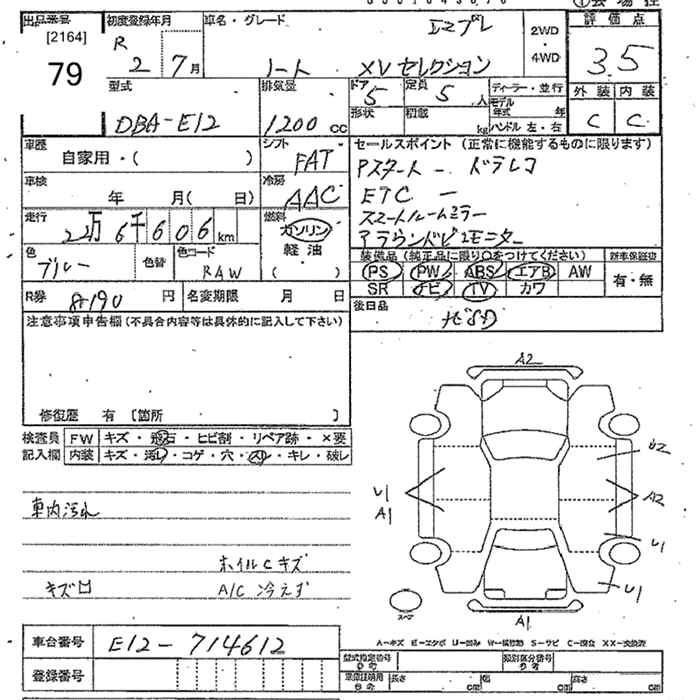 出品番号 [2164] 79
初度登録年月 R 2 7月
車名・グレード エマブレ
ノート XVセレクション
2WD・4WD
評価点 3.5
外装 内装
C C
型式 DBA-E12
排気量 1200 cc
ドア 5 定員 5 人
形状 積載 kg
ディーラー・並行
モデル年式 年
ハンドル 左・右
車歴 自家用・( )
シフト FAT
車検 年 月( 日)
冷房 AAC
走行 22万6千606km
燃料 ガソリン 軽・油 ( )
色 ブルー 色替 色コード RAW
R券 8190 円 名変期限 月 日
セールスポイント (正常に機能するものに限ります)
Pスタート - ドラレコ
ETC -
スマートルームミラー
アラウンドビューモニター
装備品(純正品に限り○をつけてください) 新車保証書
PS PW ABS エアB AW 有・無
SR ナビ TV カワ
後日品 ナビSD
注意事項申告欄(不具合内容等は具体的に記入して下さい)
修復歴 有 〔箇所 〕
検査員 FW キズ・飛石・ヒビ割・リペア跡・×要
記入欄 内装 キズ・汚レ・コゲ・穴・スレ・キレ・破レ
車内汚れ
ホイルCキズ
キズ A/C 冷えず
A2
U2
U1 A1
A2
U1
U1
スペア
A1
A-キズ E-エクボ U-凹み W-補修跡 S-サビ C-腐食 XX-交換済
車台番号 E12-714612
登録番号
型式指定番号 参考 類別区分番号 参考
車庫証明用 参考 長さ cm 幅 cm 高さ cm